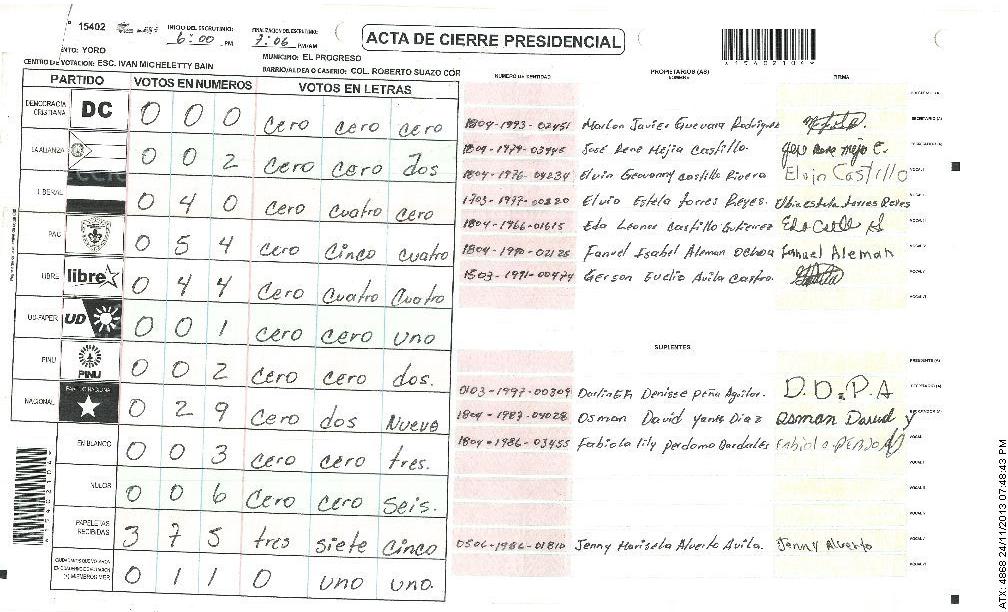 15402 INICIO DEL ESCRUTINIO: 6:00 PM FINALIZACIÓN DEL ESCRUTINIO: 7:06 PM/AM
ACTA DE CIERRE PRESIDENCIAL
*15402104*
YORO MUNICIPIO: EL PROGRESO
CENTRO DE VOTACION: ESC. IVAN MICHELETTY BAIN BARRIO/ALDEA O CASERIO: COL. ROBERTO SUAZO COR
PARTIDO VOTOS EN NUMEROS VOTOS EN LETRAS
DEMOCRACIA CRISTIANA DC 0 0 0 cero cero cero
LA ALIANZA 0 0 2 cero cero dos
LIBERAL 0 4 0 cero cuatro cero
PAC 0 5 4 cero cinco cuatro
LIBRE libre 0 4 4 cero cuatro cuatro
UD-FAPER UD 0 0 1 cero cero uno
PINU PINU 0 0 2 cero cero dos.
NACIONAL 0 2 9 cero dos Nueve
EN BLANCO 0 0 3 cero cero tres.
NULOS 0 0 6 cero cero seis.
PAPELETAS RECIBIDAS 3 7 5 tres siete cinco
0 1 1 0 uno uno.
NUMERO DE IDENTIDAD PROPIETARIOS (AS) NOMBRE FIRMA
1804-1993-02451 Marlon Javier Guevara Rodriguez
1804-1979-03945 José Rene Mejia Castillo.
1804-1976-04234 Elvin Geovanny Castillo Rivera Elvin Castillo
1703-1997-00220 Elvia Estela torres Reyes. Elvia estela torres Reyes
1804-1966-01615 Eda Leonor Castillo Gutierrez
1804-1990-02125 Fanuel Isabel Aleman Ochoa Fanuel Aleman
1503-1991-00474 Gerson Euclio Avila Castro.
SUPLENTES
0103-1997-00309 Denisse peña Aguilar. D.D.P.A
1804-1987-04028 Osman David yanes Diaz Osman David y
1804-1986-03455 Fabiola lily perdomo Bardales
0506-1986-01810 Jenny Marisela Alverto Avila. Jenny Alverto
ATX: 4868 24/11/2013 07:48:43 PM